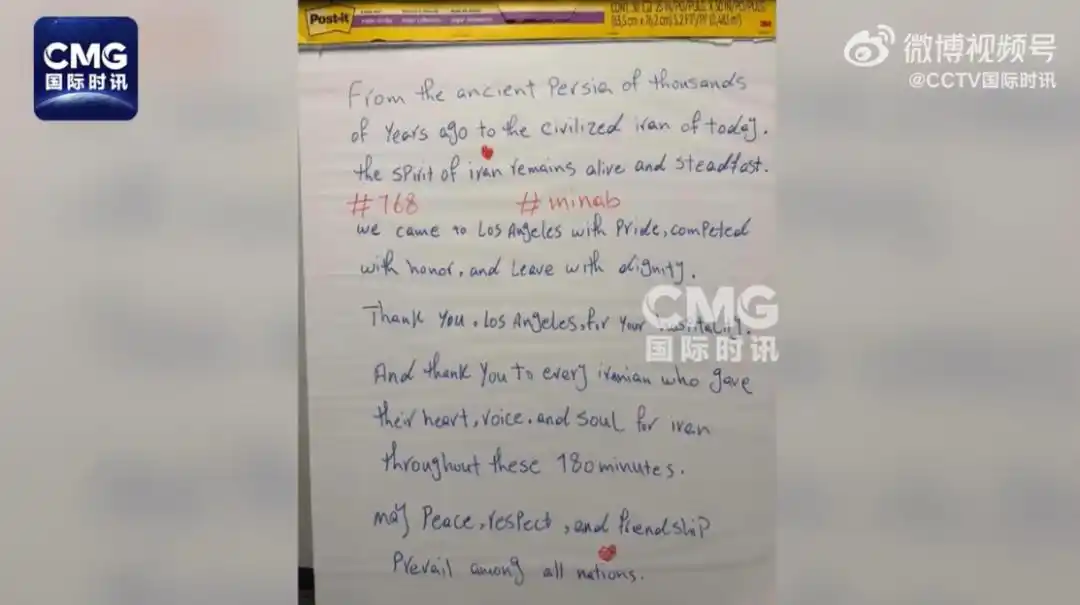 CMG
国际时讯
微博视频号
@CCTV国际时讯
Post-it
3M
From the ancient Persia of thousands
of years ago to the civilized iran of today.
the spirit of iran remains alive and steadfast.
#168 #minab
we came to Los Angeles with Pride, competed
with honor, and Leave with dignity.
Thank you, Los Angeles, for your hospitality.
And thank you to every iranian who gave
their heart, voice, and soul for iran
throughout these 180 minutes.
may Peace, respect, and friendship
Prevail among all nations.
CMG
国际时讯